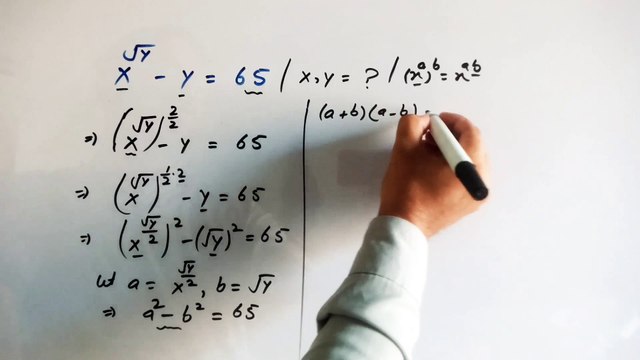 x^√y - y = 65 / x, y = ? / (x^a)^b = x^ab
⇒ (x^√y)^2/2 - y = 65
⇒ (x^√y)^1/2·2 - y = 65
⇒ (x^√y/2)^2 - (√y)^2 = 65
let a = x^√y/2, b = √y
⇒ a^2 - b^2 = 65
(a+b)(a-b) =